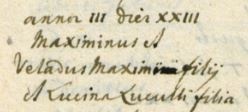 annor III Dier XXIII
Maximinus et
Veladus Maximi filij
et Lucina Luculli filia